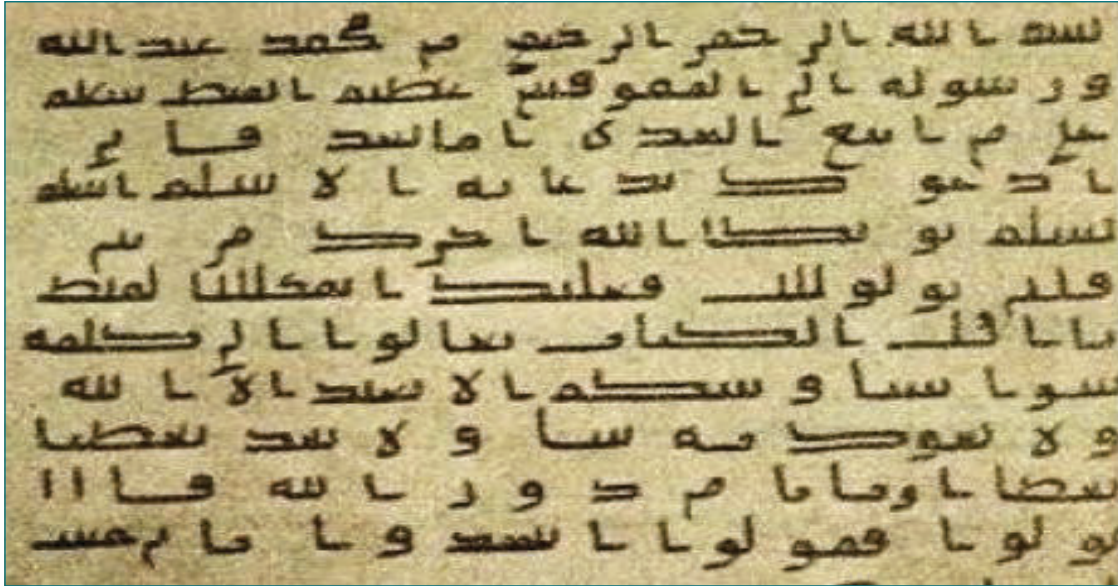 بسم الله الرحمن الرحيم من محمد عبد الله
ورسوله الى المقوقس عظيم القبط سلام
على من اتبع الهدى اما بعد فاني
ادعوك بدعاية الاسلام اسلم
تسلم يوتك الله اجرك مرتين
فان توليت فعليك القبط
يا اهل الكتاب تعالوا الى كلمة
سوا بيننا وبينكم الا نعبد الا الله
ولا نشرك به شيا ولا يتخذ بعضنا
بعضا اربابا من دون الله فان
تولوا فقولوا اشهدوا بانا مسلمون